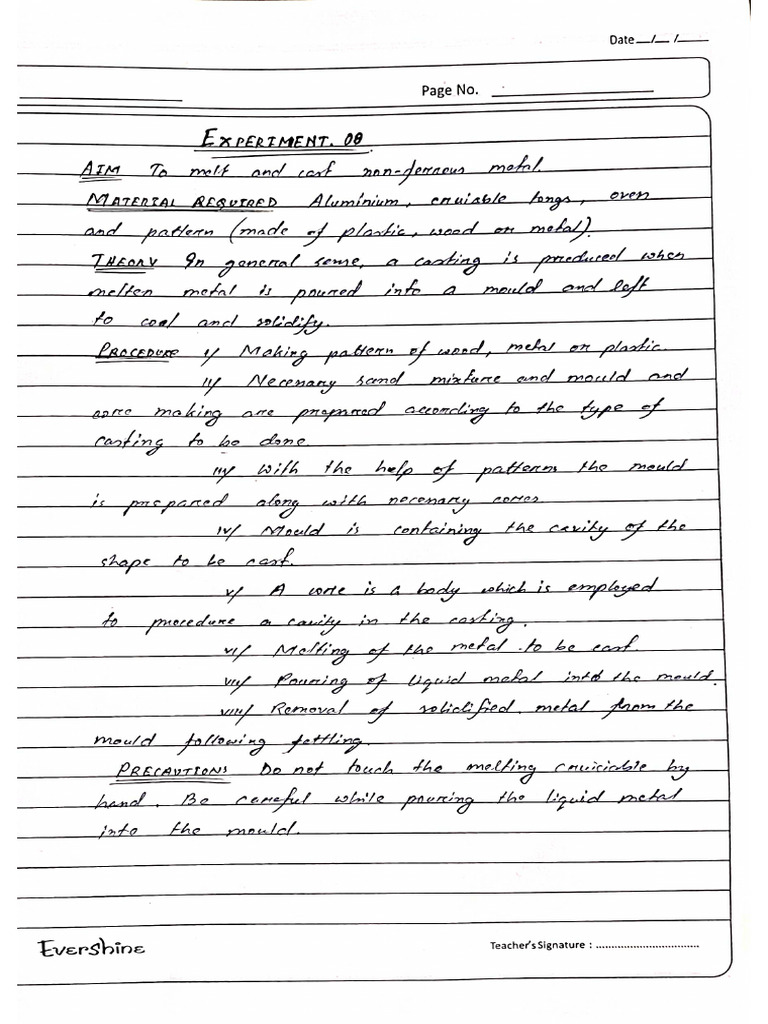 Date __/__/____
Page No.
EXPERIMENT. 08
AIM To melt and cast non-ferrous metal.
MATERIAL REQUIRED Aluminium, cruisable tongs, oven
and pattern (made of plastic, wood or metal).
THEORY In general sense, a casting is produced when
molten metal is poured into a mould and left
to cool and solidify.
PROCEDURE i/ Making pattern of wood, metal or plastic.
ii/ Necessary sand mixture and mould and
core making are prepared according to the type of
casting to be done.
iii/ With the help of patterns the mould
is prepared along with necessary cores.
iv/ Mould is containing the cavity of the
shape to be cast.
v/ A core is a body which is employed
to procedure a cavity in the casting.
vi/ Melting of the metal to be cast.
vii/ Pouring of liquid metal into the mould.
viii/ Removal of solidified metal from the
mould following fettling.
PRECAUTIONS Do not touch the melting cruiciable by
hand. Be careful while pouring the liquid metal
into the mould.
Evershine
Teacher's Signature : ..................................